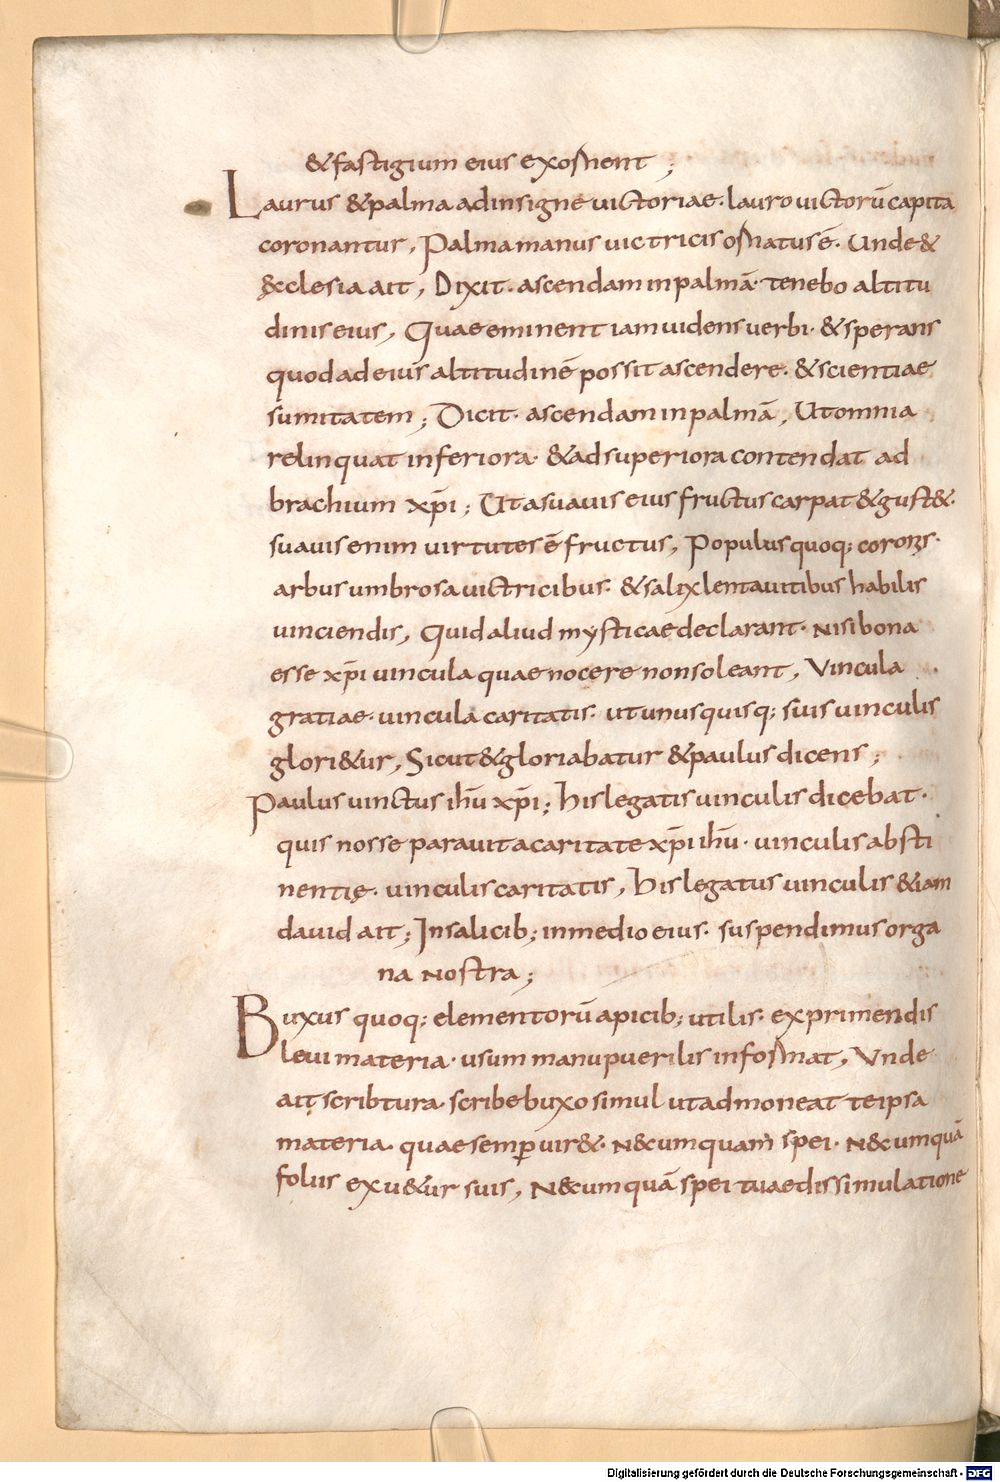 &fastigium eius exornent ;
Laurus &palma adinsigne uictoriae· lauro uictorū capita
coronantur, Palma manus uictricis ornatus ē· Unde &
&cclesia ait, Dixit· ascendam in palmā· tenebo altitu
dinis eius, Quae eminentiam uidens uerbi· &sperans
quod ad eius altitudinē possit ascendere· &scientiae
sumitatem ; Dicit· ascendam in palmā, Ut omnia
relinquat inferiora· &ad superiora contendat ad
brachium xp̄i ; Ut a suauis eius fructus carpat &gust&·
suauis enim uirtutes ē fructus, Populus quoq;
arbus umbrosa uictricibus· &salix lenta uitibus habilis
uinciendis, Quid aliud mysticae declarant· nisi bona
esse xp̄i uincula quae nocere non soleant, Vincula
gratiae· uincula caritatis· ut unusquisq; suis uinculis
glori&ur, Sicut &gloriabatur &paulus dicens ;
Paulus uinctus ihū xp̄i ; His legatis uinculis dicebat·
quis nosse parauit a caritate xp̄i ihū· uinculis absti
nentię· uinculis caritatis, His legatus uinculis &iam
dauid ait ; In salicib; in medio eius· suspendimus orga
na nostra ;
Buxus quoq; elementorū apicib; utilis· exprimendis
leui materia· usum manu puerilis informat, Vnde
ait scribtura· scribe buxo simul ut admoneat te ipsa
materia· quae semꝑ uir&· n&cumquam spei· n&cumquā
foliis exu&ur suis, N&cumquā spei tuae dissimulatione
Digitalisierung gefördert durch die Deutsche Forschungsgemeinschaft - DFG